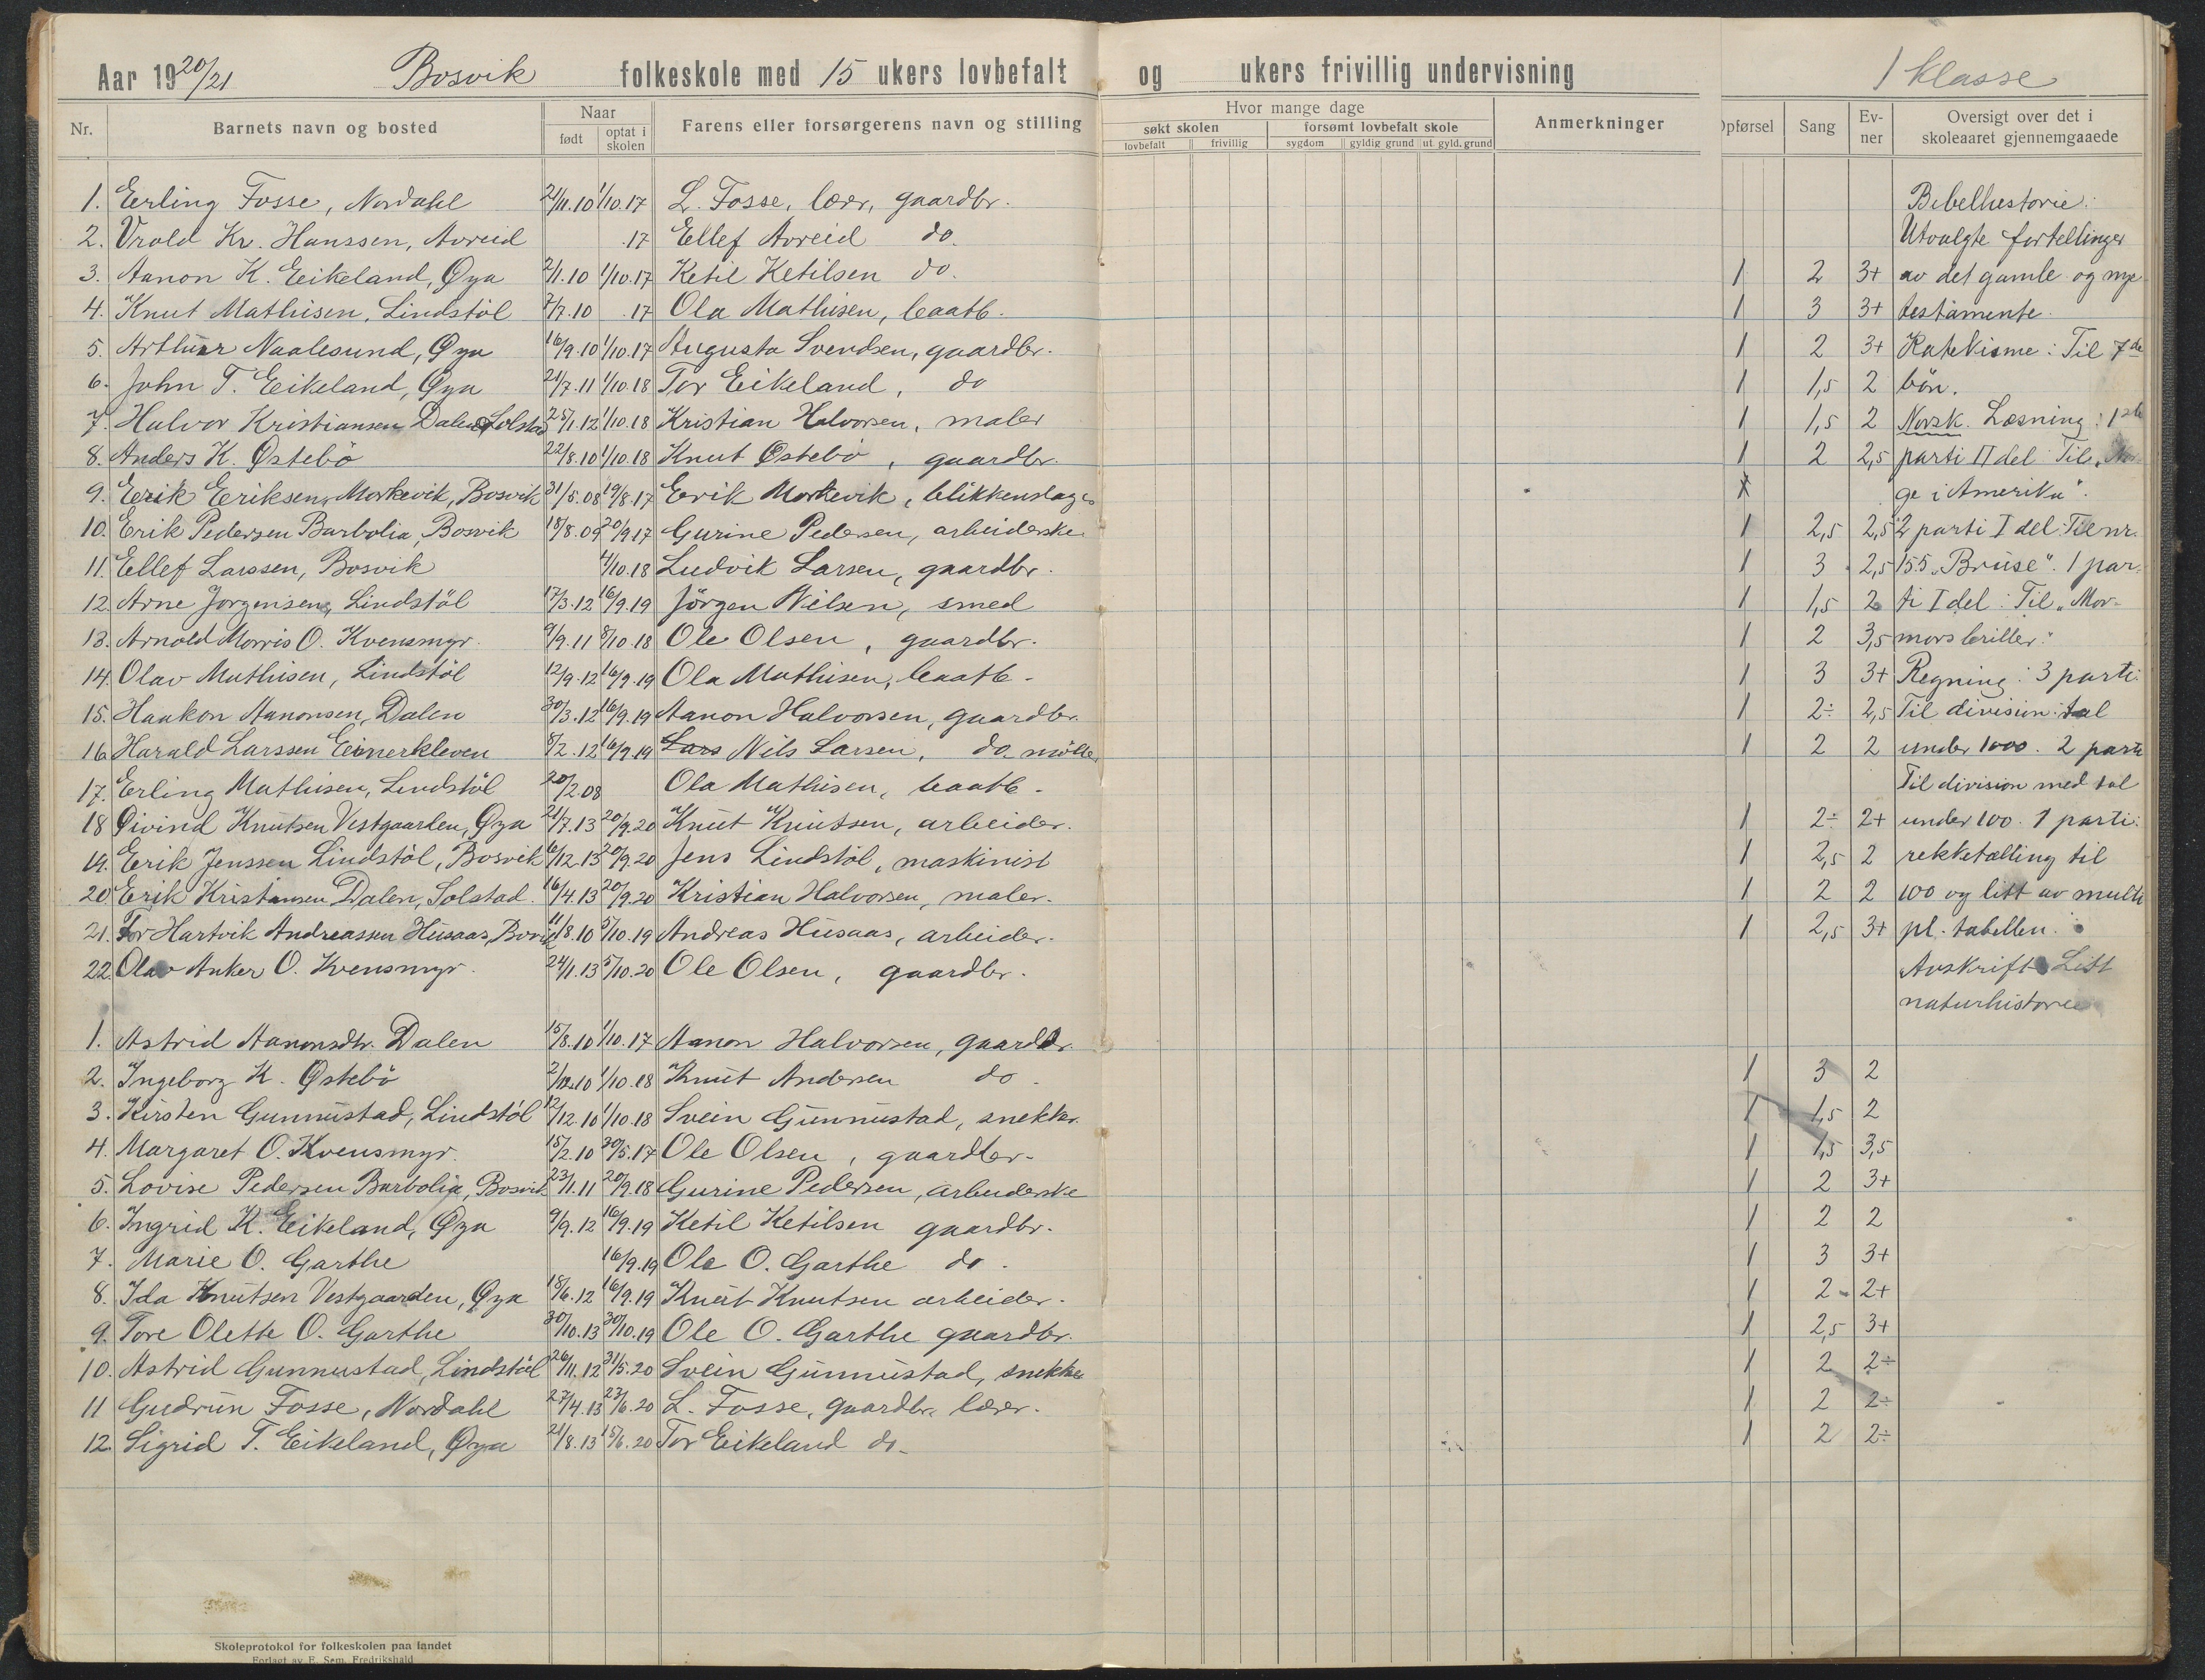 Aar 1920/21 Bosvik folkeskole med 15 ukers lovbefalt og ukers frivillig undervisning 1 klasse
Nr. Barnets navn og bosted Naar født optat i skolen Farens eller forsørgerens navn og stilling Hvor mange dage søkt skolen lovbefalt frivillig forsømt lovbefalt skole sygdom gyldig grund ut gyld. grund Anmerkninger Opførsel Sang Evner Oversigt over det i skoleaaret gjennemgaaede
1. Erling Fosse, Nordahl 21/11.10 1/10.17 L. Fosse, lærer, gaardbr. Bibelhistorie:
2. Vrold Kr. Hanssen, Avreid .17 Ellef Avreid do. Utvalgte fortellinger
3. Aanon K. Eikeland, Øya 2/1.10 1/10.17 Ketil Ketilsen do. 1 2 3+ av det gamle og nye
4. Knut Mathisen, Lindstöl 7/7.10 .17 Ola Mathisen, baatb. 1 3 3+ testamente.
5. Arthur Naalesund, Øya 16/9.10 1/10.17 Augusta Svendsen, gaardbr. 1 2 3+ Katekisme: Til 7de
6. John T. Eikeland, Øya 21/7.11 1/10.18 Tor Eikeland, do 1 1,5 2 bön.
7. Halvor Kristiansen Dalen Solstad 25/1.12 1/10.18 Kristian Halvorsen, maler 1 1,5 2 Norsk. Læsning: 1ste
8. Anders K. Østebö 22/8.10 1/10.18 Knut Østebö, gaardbr. 1 2 2,5 parti II del Til „Nor-
9. Erik Eriksen Morkevik, Bosvik 31/5.08 19/8.17 Eerik Morkevik, blikkenslager ge i Amerika".
10. Erik Pedersen Barbolia, Bosvik 18/8.09 20/9.17 Gurine Pedersen, arbeiderske 1 2,5 2,5 2 parti I del: Til nr.
11. Ellef Larssen, Bosvik 4/10.18 Ludvik Larsen, gaardbr. 1 3 2,5 155 „Bruse". 1 par-
12. Arne Jorgensen, Lindstöl 17/3.12 16/9.19 Jörgen Nilsen, smed 1 1,5 2 ti I del: Til „Mor-
13. Arnold Morris O. Kvensmyr 9/9.11 8/10.18 Ole Olsen, gaardbr. 1 2 3,5 mors briller."
14. Olav Mathisen, Lindstöl 12/9.12 16/9.19 Ola Mathisen, baatb. 1 3 3+ Regning: 3 parti:
15. Haakon Aanonsen, Dalen 30/3.12 16/9.19 Aanon Halvorsen, gaardbr. 1 2÷ 2,5 Til division: tal
16. Harald Larssen Einerkleven 8/2.12 16/9.19 Lars Nils Larsen, do. möller 1 2 2 under 1000. 2 parti
17. Erling Mathisen, Lindstöl 20/2.08 Ola Mathisen, baatb. Til division med tal
18 Øivind Knutsen Vestgaarden, Øya 21/7.13 20/9.20 Knut Knutsen, arbeider. 1 2÷ 2+ under 100. 1 parti:
19. Erik Jenssen Lindstöl, Bosvik 6/12.13 20/9.20 Jens Lindstöl, maskinist 1 2,5 2 rekketælling til
20 Erik Kristiansen Dalen, Solstad. 16/4.13 20/9.20 Kristian Halvorsen, maler. 1 2 2 100 og litt av multi
21. Tor Hartvik Andreassen Husaas, Bosvik 11/8.10 5/10.19 Andreas Husaas, arbeider. 1 2,5 3+ pl. tabellen.
22 Olav Anker O. Kvensmyr. 24/1.13 5/10.20 Ole Olsen, gaardbr. Avskrift Litt
naturhistorie
1. Astrid Aanonsdtr. Dalen 15/8.10 1/10.17 Aanon Halvorsen, gaardbr.
2. Ingeborg K. Østebö 2/12.10 1/10.18 Knut Andersen do. 1 3 2
3. Kirsten Gunnustad, Lindstöl 12/12.10 1/10.18 Svein Gunnustad, snekker. 1 1,5 2
4. Margaret O. Kvensmyr. 15/2.10 30/5.17 Ole Olsen, gaardbr. 1 1,5 3,5
5. Lovise Pedersen Barbolia, Bosvik 23/1.11 20/9.18 Gurine Pedersen, arbeiderske 1 2 3+
6. Ingrid K. Eikeland, Øya 9/9.12 16/9.19 Ketil Ketilsen gaardbr. 1 2 2
7. Marie O. Garthe 16/9.19 Ole O. Garthe do. 1 3 3+
8. Ida Knutsen Vestgaarden, Øya 18/6.12 16/9.19 Knut Knutsen arbeider. 1 2 2+
9. Tore Olette O. Garthe 30/10.13 30/10.19 Ole O. Garthe gaardbr. 1 2,5 3+
10. Astrid Gunnustad, Lindstöl 26/11.12 31/5.20 Svein Gunnustad, snekker 1 2 2÷
11 Gudrun Fosse, Nordahl 27/4.13 23/6.20 L. Fosse, gaardbr. lærer. 1 2 2÷
12. Sigrid T. Eikeland, Øya 21/8.13 15/6.20 Tor Eikeland do. 1 2 2÷
Skoleprotokol for folkeskolen paa landet
Forlagt av E. Sem, Fredrikshald